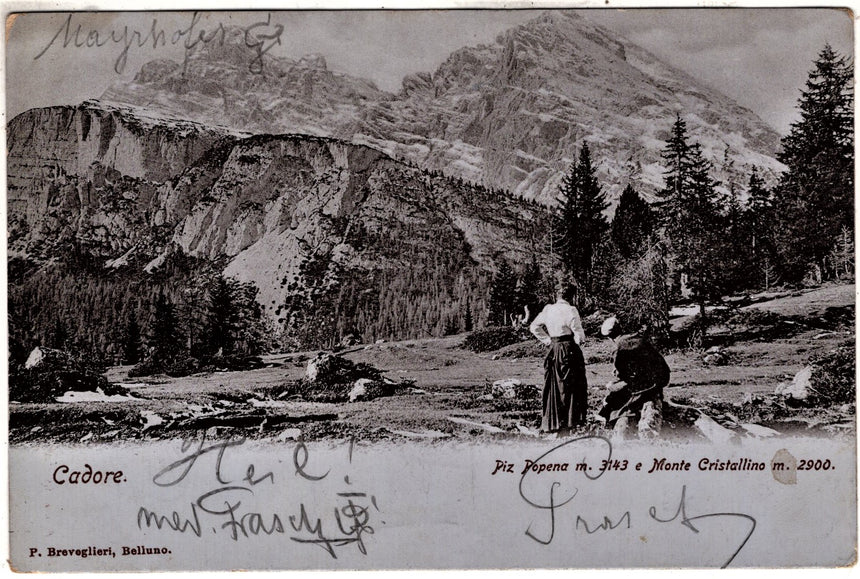 Mayrhofer
Cadore.
Piz Popena m. 3143 e Monte Cristallino m. 2900.
Heil!
med.
P. Breveglieri, Belluno.